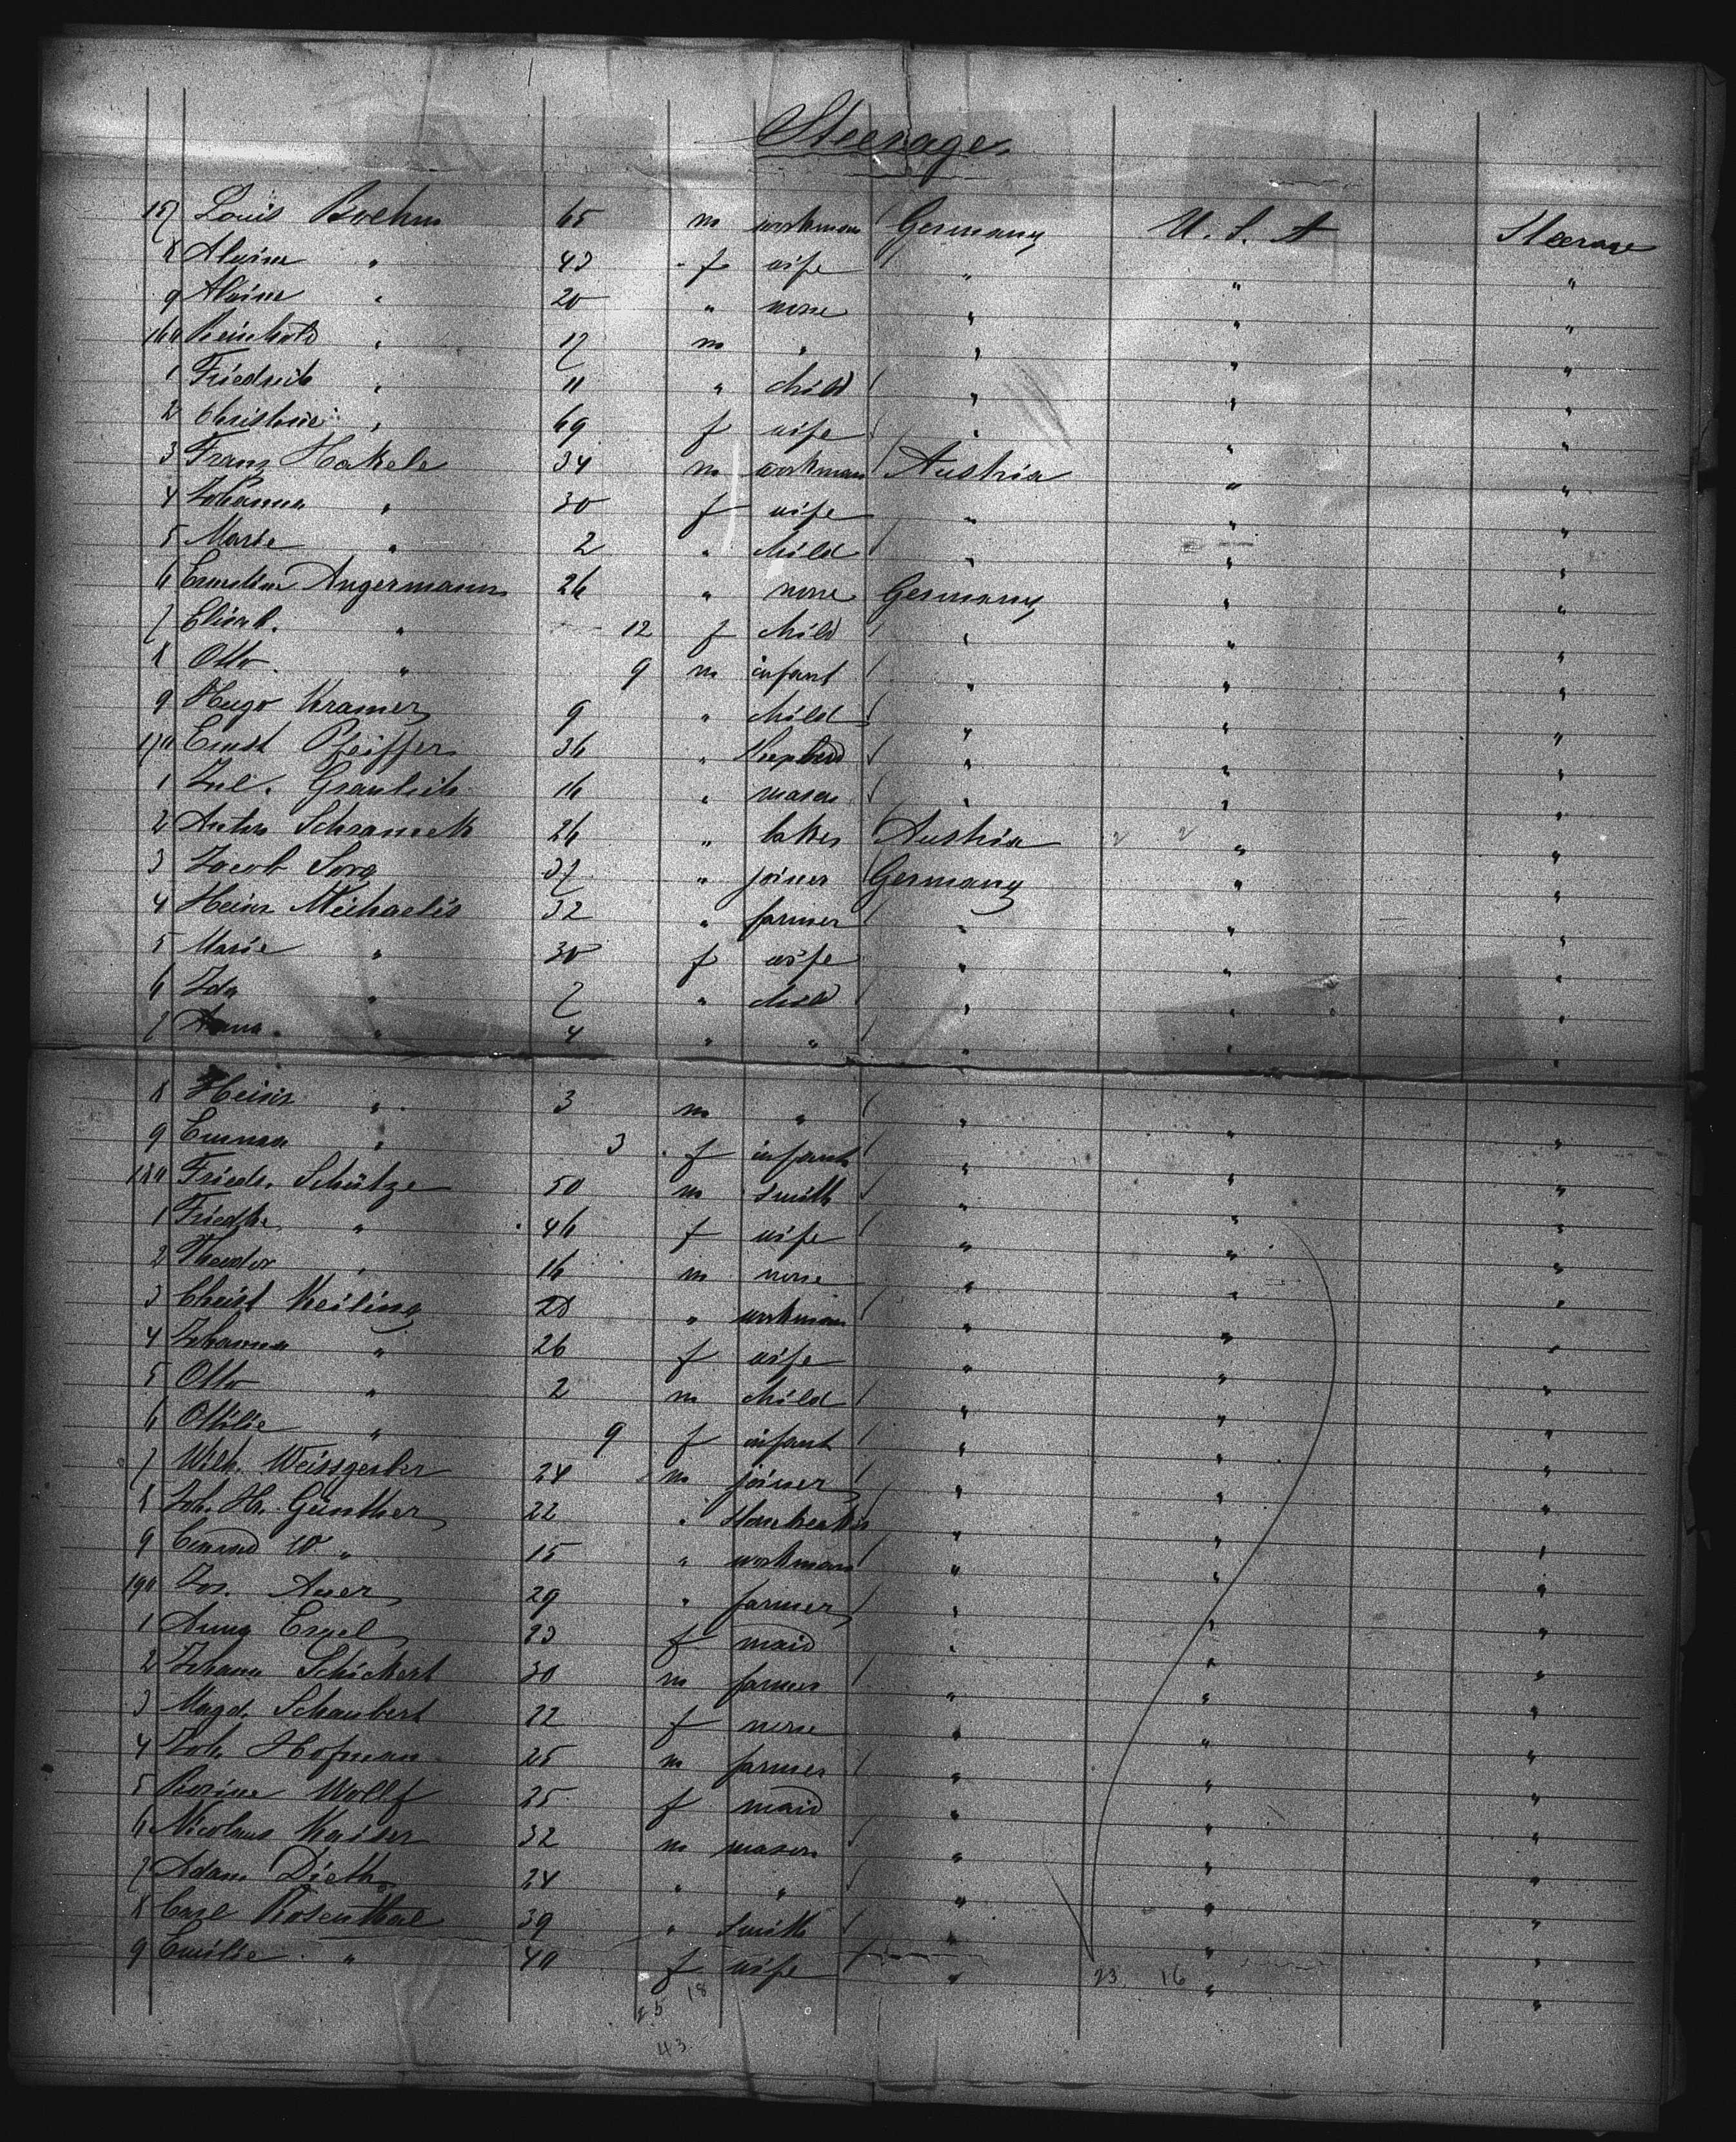 Steerage
157 Louis Boehm 65 m workman Germany U. S. A Steerage
8 Alwine " 43 f wife " " "
9 Alwine " 20 " none " " "
160 Reinhold " 17 m " " " "
1 Friedrich " 11 " child " " "
2 Christine " 69 f wife " " "
3 Franz Hakele 34 m workman Austria " "
4 Johanna " 30 f wife " " "
5 Marie " 2 " child " " "
6 Ernestine Angermann 26 " none Germany " "
7 Elisab. " 12 f child " " "
8 Otto " 9 m infant " " "
9 Hugo Kramer 9 " child " " "
170 Ernst Pfeiffer 36 " " " "
1 Jul. Graulich 16 " mason " " "
2 Anton Schrameck 26 " baker Austria " "
3 Jacob Sorg 37 " joiner Germany " "
4 Heinr Michaelis 32 " farmer " " "
5 Marie " 30 f wife " " "
6 Ida " 7 " child " " "
7 Anna " 4 " " " " "
8 Heinr " 3 m " " " "
9 Emma " 3 f infant " " "
180 Friedr. Schütze 50 m smith " " "
1 Friedke " 46 f wife " " "
2 Theodor " 16 m none " " "
3 Christ Keiling 28 " workman " " "
4 Johanna " 26 f wife " " "
5 Otto " 2 m child " " "
6 Ottilie " 9 f infant " " "
7 Wilh. Weissgerber 24 m joiner " " "
8 Joh. Hr. Günther 22 " " " "
9 Conrad W " 15 " workman " " "
190 Jos. Auer 29 " farmer " " "
1 Anna Engel 23 f maid " " "
2 Johann Schickert 30 m farmer " " "
3 Magd. Schaubert 22 f none " " "
4 Joh. Hofman 25 m farmer " " "
5 Rosine Wollf 25 f maid " " "
6 Nicolaus Kaiser 32 m mason " " "
7 Adam Dieth 24 " " " " "
8 Carl Rosenthal 39 " smith " " "
9 Emilie " 40 f wife " " "
23 16
25 18
43